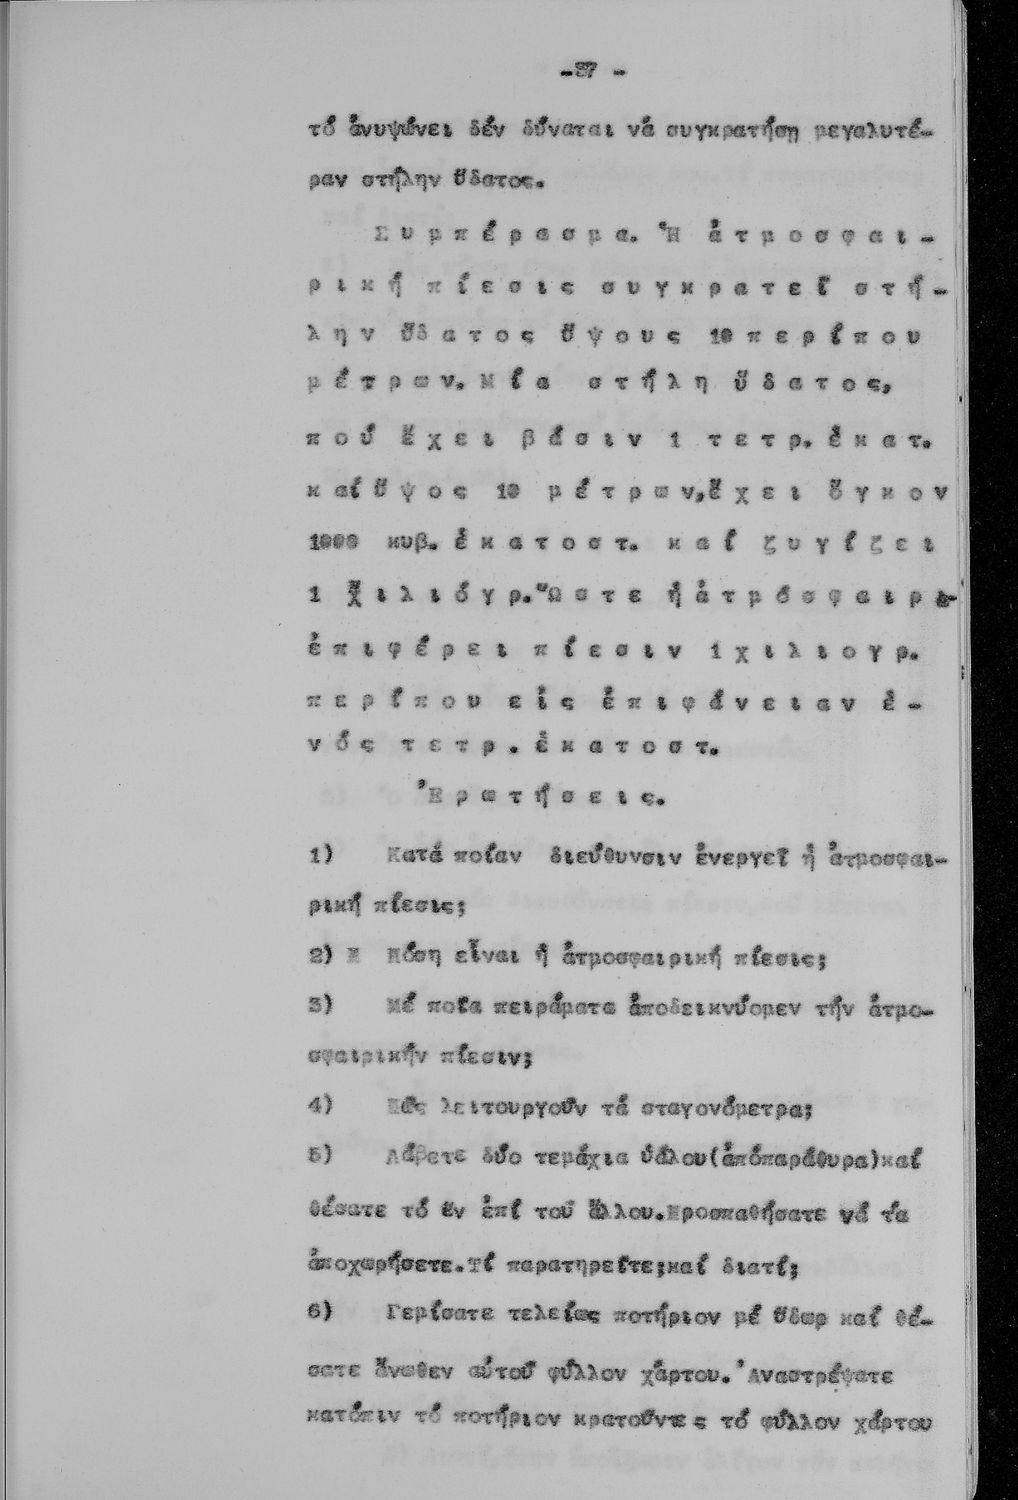 -37 -
τό ἀνυψώνει δέν δύναται νά συγκρατήσῃ μεγαλυτέ-
ραν στήλην ὕδατος.
Συμπέρασμα. Ἡ ἀτμοσφαι-
ρική πίεσις συγκρατεῖ στή-
λην ὕδατος ὕψους 10 περίπου
μέτρων. Μία στήλη ὕδατος,
πού ἔχει βάσιν 1 τετρ. ἑκατ.
καί ὕψος 10 μέτρων, ἔχει ὄγκον
1000 κυβ. ἑκατοστ. καί ζυγίζει
1 χιλιόγρ. Ὥστε ἡ ἀτμόσφαιρα
ἐπιφέρει πίεσιν 1 χιλιογρ.
περίπου εἰς ἐπιφάνειαν ἑ-
νός τετρ. ἑκατοστ.
Ἐρωτήσεις.
1) Κατά ποίαν διεύθυνσιν ἐνεργεῖ ἡ ἀτμοσφαι-
ρική πίεσις;
2) Πόση εἶναι ἡ ἀτμοσφαιρική πίεσις;
3) Μέ ποῖα πειράματα ἀποδεικνύομεν τήν ἀτμο-
σφαιρικήν πίεσιν;
4) Πῶς λειτουργοῦν τά σταγονόμετρα;
5) Λάβετε δύο τεμάχια ὑάλου(ἀπόπαράθυρα)καί
θέσατε τό ἕν ἐπί τοῦ ἄλλου.Προσπαθήσατε νά τά
ἀποχωρήσετε.Τί παρατηρεῖτε;καί διατί;
6) Γεμίσατε τελείως ποτήριον μέ ὕδωρ καί θέ-
σατε ἄνωθεν αὐτοῦ φύλλον χάρτου. Ἀναστρέψατε
κατόπιν τό ποτήριον κρατοῦντες τό φύλλον χάρτου